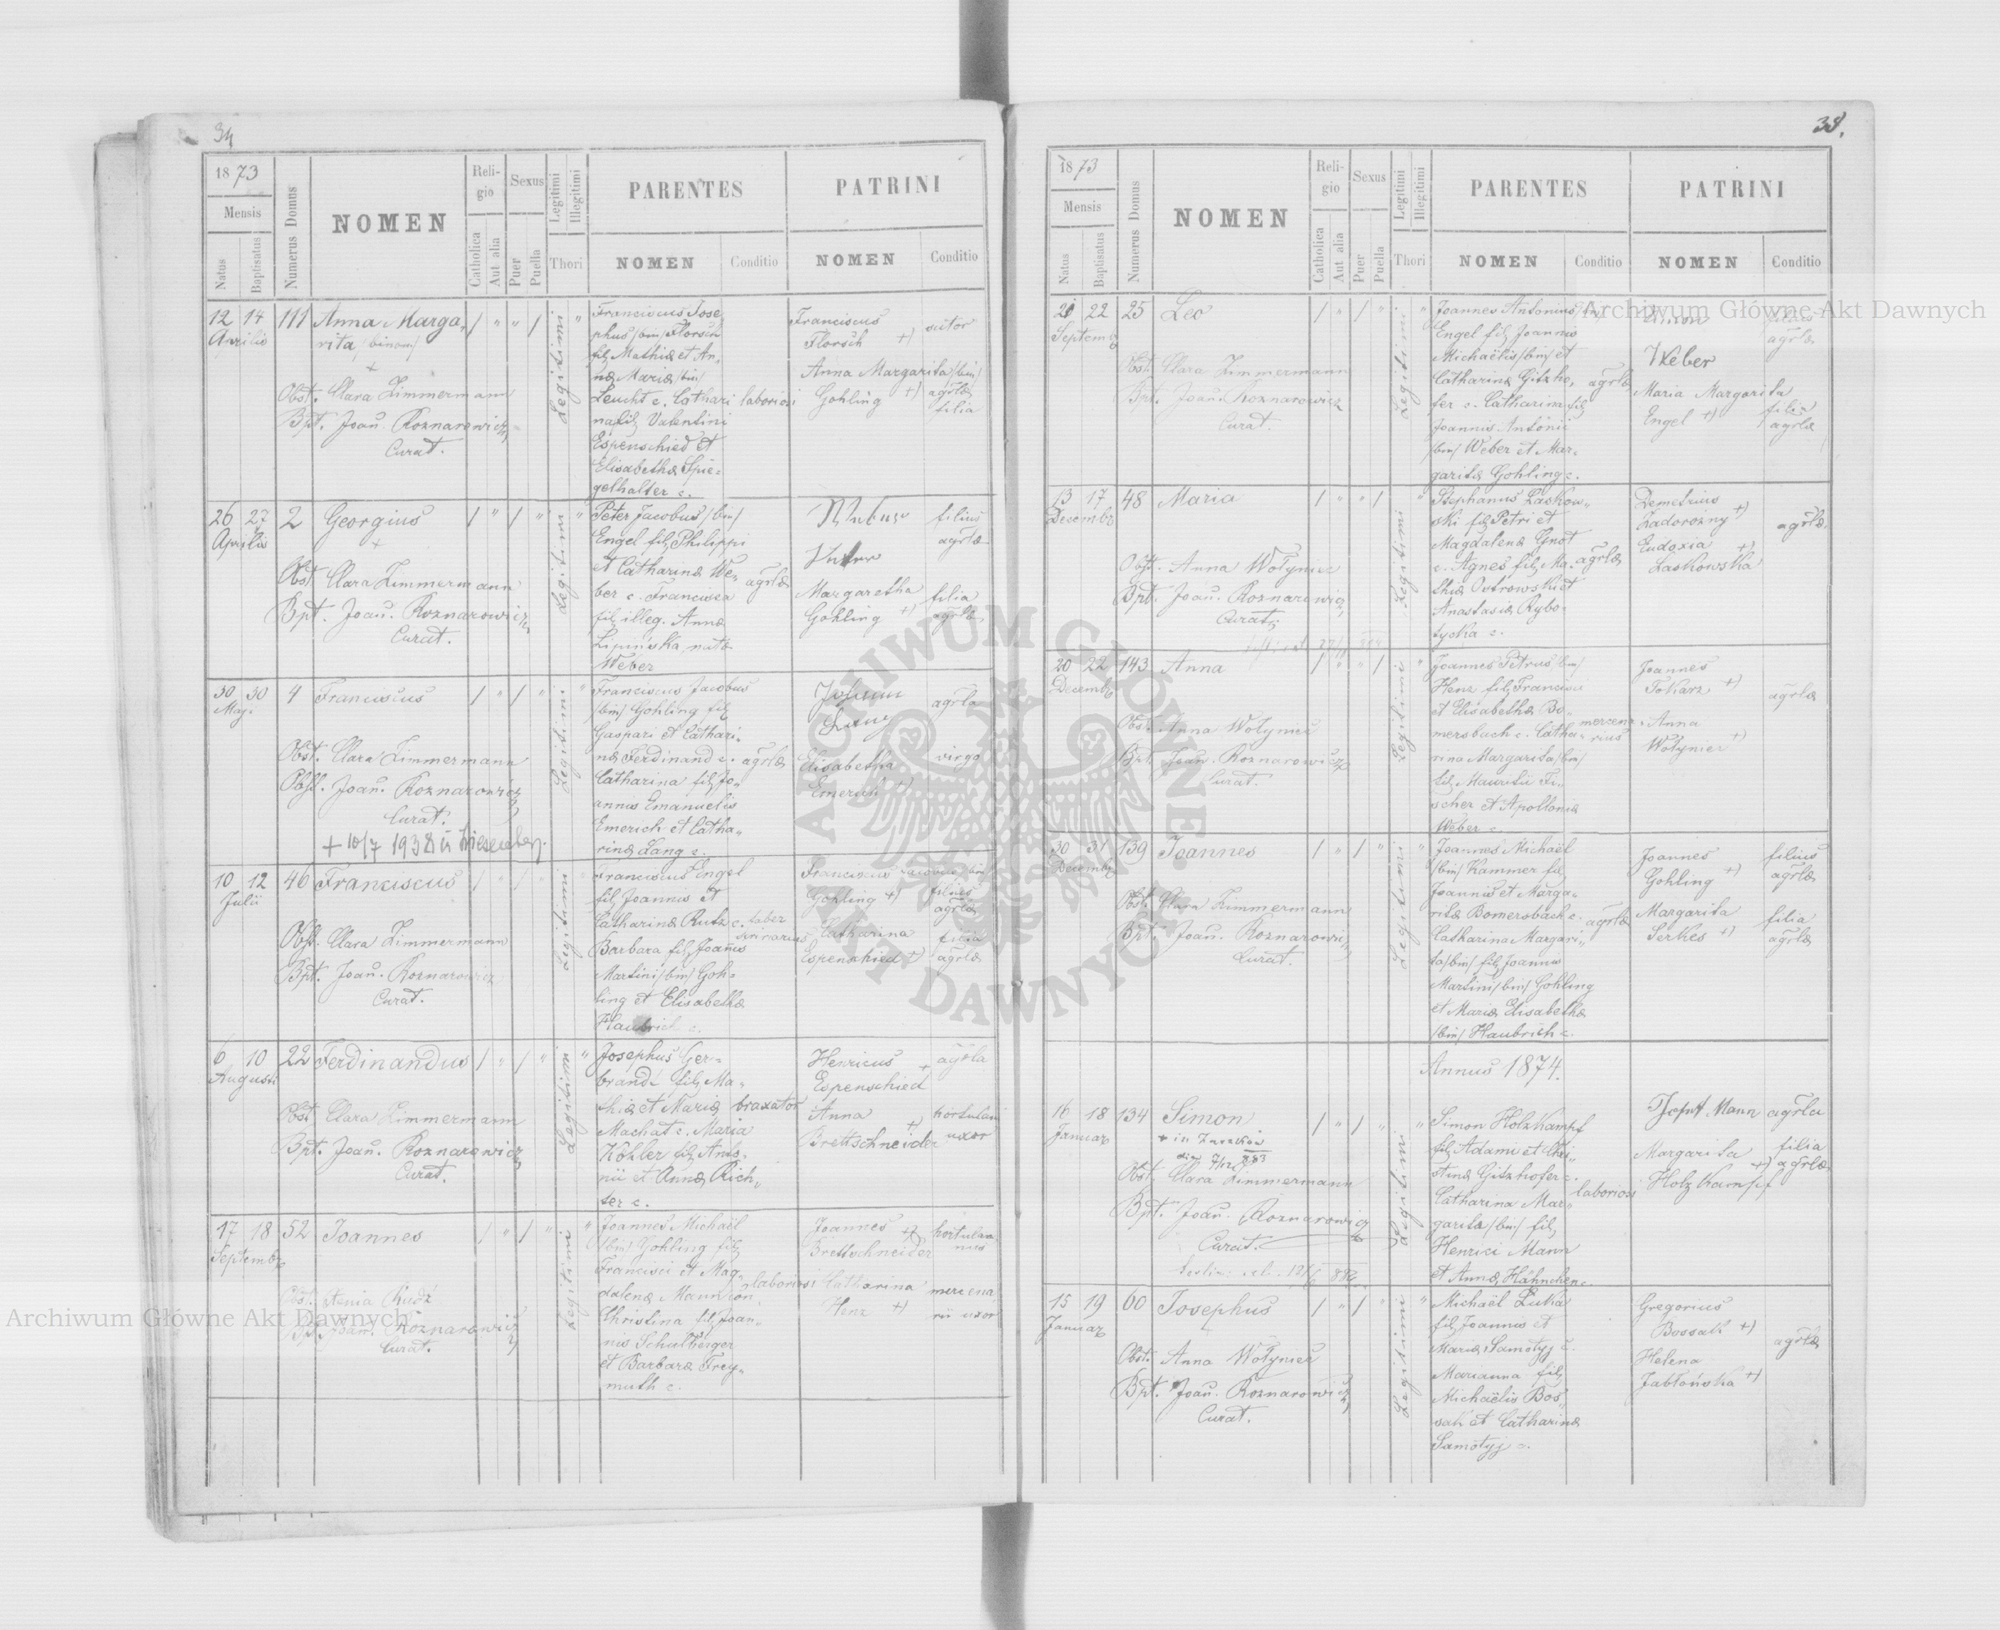 34
1873
Mensis
Natus
Baptisatus
Numerus Domus
NOMEN
Religio
Catholica
Aut alia
Sexus
Puer
Puella
Legitimi
Illegitimi
Thori
PARENTES
NOMEN
Conditio
PATRINI
NOMEN
Conditio
12 14 111 Anna Marga,
Aprilis
rita /binom/
+
Obst. Clara Zimmermann
Bpt. Joan. Roznarowicz
Curat.
Legitimi
Franciscus Jose
phus /bin/ Florsch
fil. Mathiæ et An,
næ Mariæ /bin/
Leucht c. Cathari
na fil. Valentini
Espenschied et
Elisabethæ Spie=
gelhalter c.
laboriosi
Franciscus
Florsch +)
sutor
Anna Margarita /bin/
Gohling +)
agrlæ
filia
26 27 2 Georgius
Aprilis
+
Obst. Clara Zimmermann
Bpt. Joan. Roznarowicz
Curat.
Legitimi
Peter Jacobus /bin/
Engel fil. Philippi
et Catharinæ We,
ber c. Francisca
fil. illeg. Annæ
Lipińska natæ
Weber
agrlæ
filius
agrlæ
Margaretha
Gohling +)
filia
agrlæ
30 30 4 Franciscus
Maji
Obst. Clara Zimmermann
Joan. Roznarowicz
Curat.
+ 10/7 1938 in Wiesenberg.
Legitimi
Franciscus Jacobus
/bin/ Gohling fil.
Gaspari et Cathari-
næ Ferdinand c.
Catharina fil. Jo,
annis Emanuelis
Emerich et Catha,
rinæ Lang c.
agrlæ
Johann
Lang
agrla
Elisabetha
Emerich +)
virgo
10 12 46 Franciscus
Julii
Obst. Clara Zimmermann
Bpt. Joan. Roznarowicz
Curat.
Legitimi
Franciscus Engel
fil. Joannis et
Catharinæ Rutz c.
Barbara fil. Joannis
Martini /bin/ Goh-
ling et Elisabethæ
Haubrich c.
faber
Franciscus Jacobus /bin/
Gohling +)
filius
agrlæ
Catharina
Espenschied +)
filia
agrlæ
6 10 22 Ferdinandus
Augusti
Obst. Clara Zimmermann
Bpt. Joan. Roznarowicz
Curat.
Legitimi
Josephus Ger-
brand fil. Ma-
thiæ et Mariæ
Machat c. Maria
Kohler fil. Anto-
nii et Annæ Rich,
ter c.
braxator
Henricus
Espenschied +
agrla
Anna
Brettschneider +)
hortulani
uxor
17 18 52 Joannes
Septemb.
Obst. Rusz
Bpt. Joan. Roznarowicz
Curat.
Legitimi
Joannes Michaël
/bin/ Gohling fil.
Francisci et Mag-
dalenæ Mannion
Christina fil. Joan,
nis Schulheiser
et Barbaræ Frey,
muth c.
laboriosi
Joannes
Brettschneider +)
hortula
nus
Catharina
Henz +)
mercena
rii uxor
1873
Mensis
Natus
Baptisatus
Numerus Domus
NOMEN
Religio
Catholica
Aut alia
Sexus
Puer
Puella
Legitimi
Illegitimi
Thori
PARENTES
NOMEN
Conditio
PATRINI
NOMEN
Conditio
22 25 Leo
Septemb.
Obst. Clara Zimmermann
Bpt. Joan. Roznarowicz
Curat.
Legitimi
Joannes Antonius /bin/
Engel fil. Joannis
Michaëlis /bin/ et
Catharinæ Gitzho,
fer c. Catharina fil.
Joannis Antonii
/bin/ Weber et Mar-
garitæ Gohling c.
agrlæ
Simon
Weber
filius
agrlæ
Maria Margarita
Engel +)
filia
agrlæ
13 17 48 Maria
Decemb.
Obst. Anna Wołyniec
Bpt. Joan. Roznarowicz
Curat.
Legitimi
Stephanus Laskow-
ski fil. Petri et
Magdalenæ Gnot
c. Agnes fil. Ma-
thiæ Ostrowski et
Anastasiæ Rybo-
tycka c.
agrlæ
Demetrius
Zadorożny +)
Eudoxia
Laskowska +)
agrlæ
20 22 143 Anna
Decemb.
Obst. Anna Wołyniec
Bpt. Joan. Roznarowicz
Curat.
Legitimi
Joannes Petrus /bin/
Henz fil. Francisci
et Elisabethæ Bo-
mersbach c. Catha-
rina Margarita /bin/
fil. Mauritii Fi-
scher et Apolloniæ
Weber c.
mercena-
rius
Joannes
Tokarz +)
Anna
Wołyniec +)
agrlæ
30 31 139 Joannes
Decemb.
Obst. Clara Zimmermann
Bpt. Joan. Roznarowicz
Curat.
Legitimi
Joannes Michaël
/bin/ Kammer fil.
Joannis et Marga-
ritæ Bomersbach c.
Catharina Margari-
ta /bin/ fil. Joannis
Martini /bin/ Gohling
et Mariæ Elisabethæ
/bin/ Haubrich c.
agrlæ
Joannes
Gohling +)
filius
agrlæ
Margarita
Serkes +)
filia
agrlæ
Annus 1874.
16 18 134 Simon
Januar.
Obst. Clara Zimmermann
Bpt. Joan. Roznarowicz
Curat.
Legitimi
Simon Holzkampf
fil. Adami et Chri-
stinæ Gitzhofer c.
Catharina Mar-
garita /bin/ fil.
Henrici Mann
et Annæ Hähnchen c.
laboriosi
Josef Mann agrla
Margarita
Holzkampf +)
filia
agrlæ
15 19 60 Josephus
Januar.
Obst. Anna Wołyniec
Bpt. Joan. Roznarowicz
Curat.
Legitimi
Michaël Luka
fil. Joannis et
Mariæ Samotyj c.
Marianna fil.
Michaëlis Bos-
sak et Catharinæ
Samotyj c.
Gregorius
Bossak +)
Helena
Jabłońska +)
agrlæ
Archiwum Główne Akt Dawnych
Archiwum Główne Akt Dawnych
ARCHIWUM GŁÓWNE AKT DAWNYCH